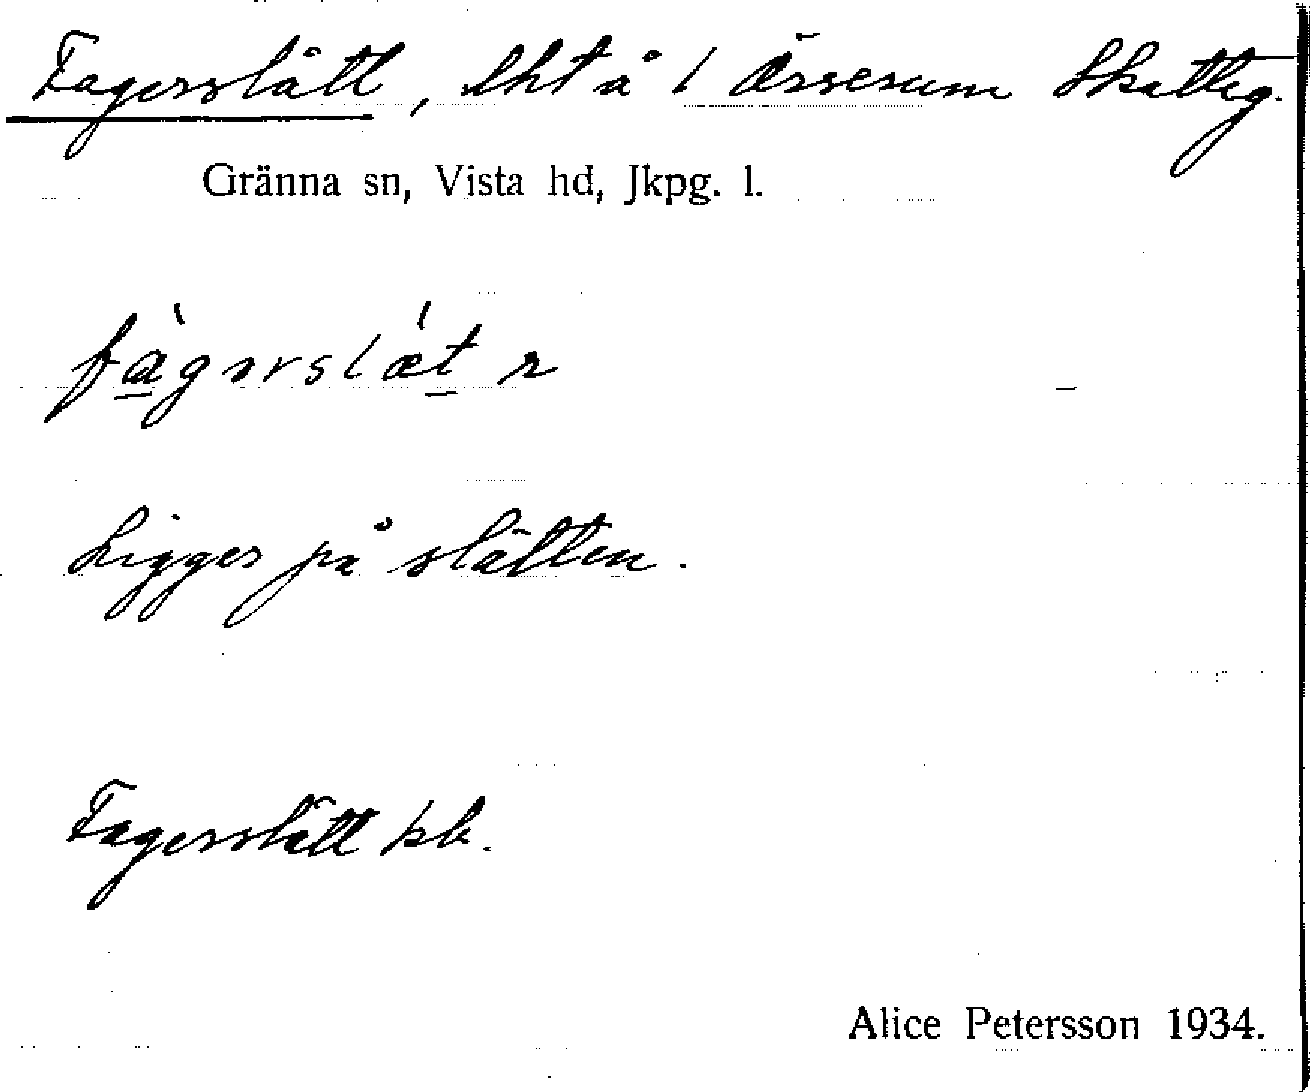 Fagerslätt, lht å 1 Örserum Skatteg.
Gränna sn, Vista hd, Jkpg. l.
fàgərslǽt r
Ligger på slätten.
Fagerslätt kb.
Alice Petersson 1934.